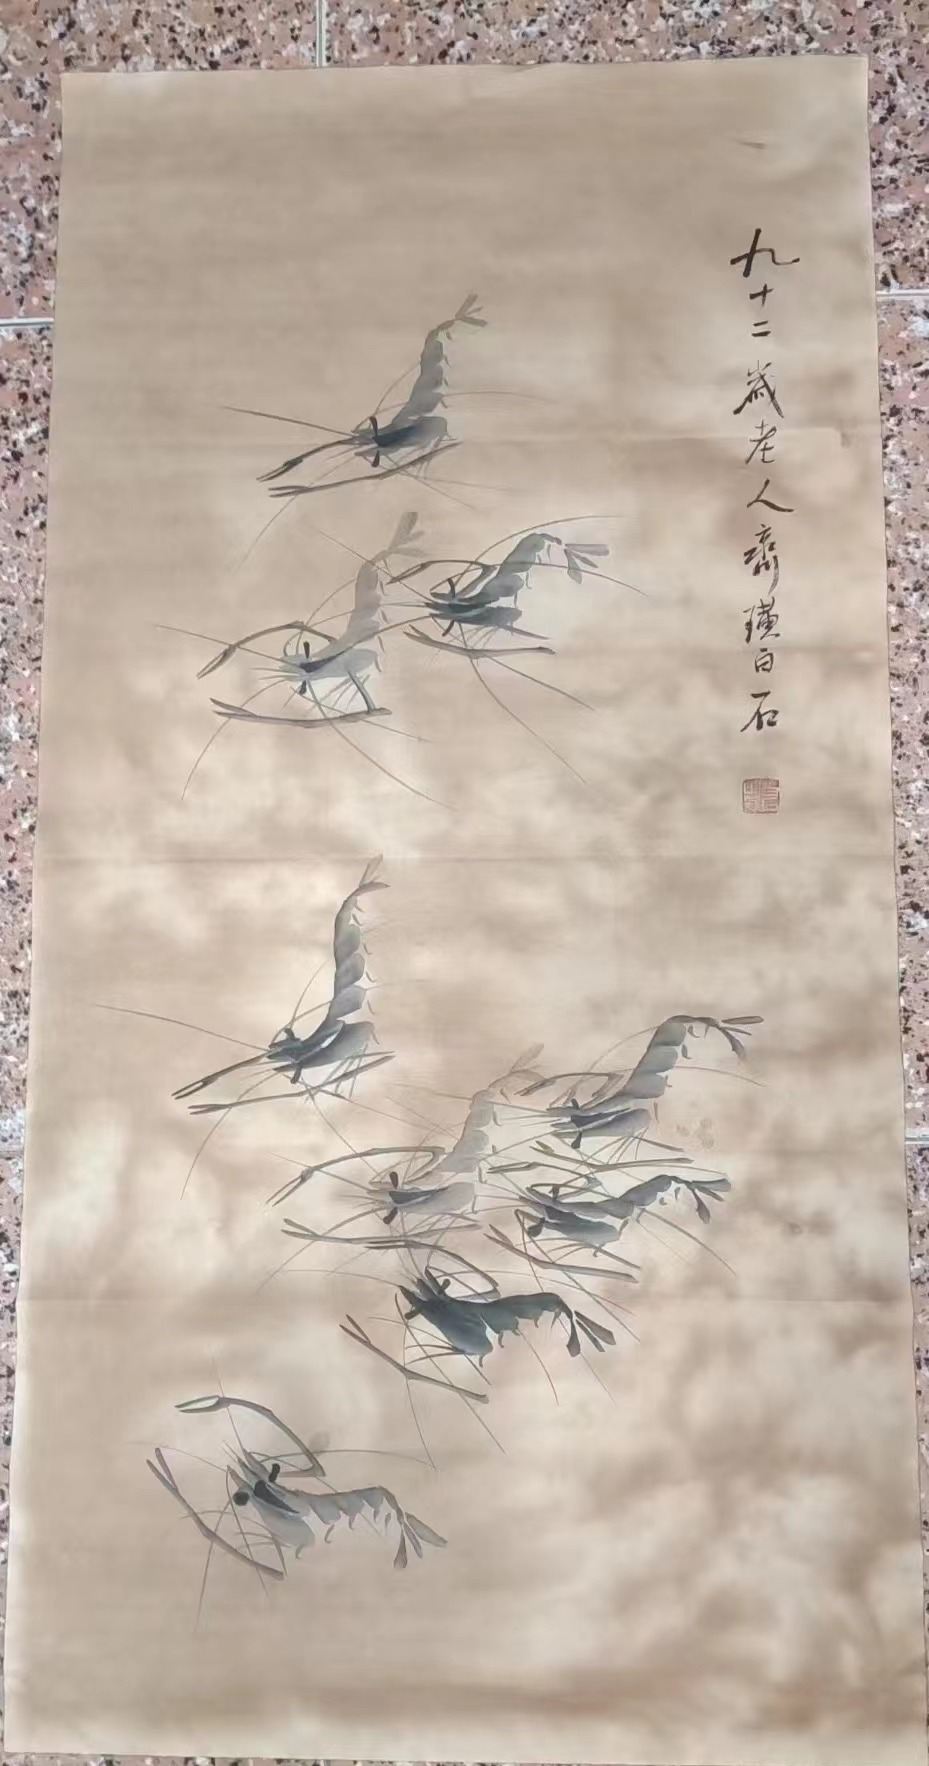 九十二歲老人齊璜白石